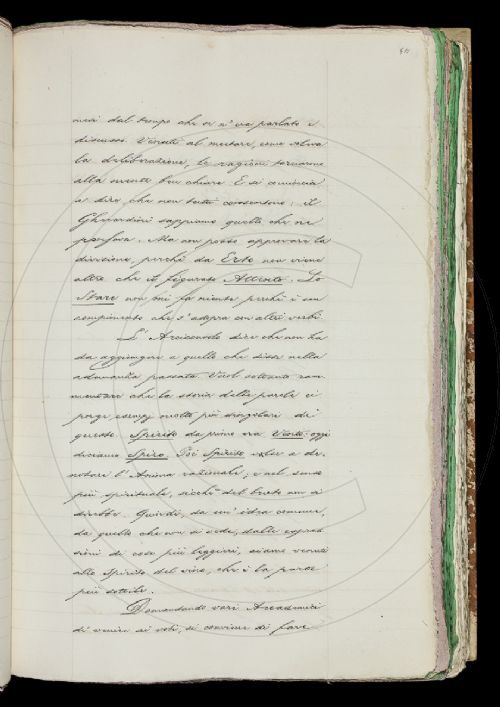 mesi dal tempo che se n'era parlato e
discusso. Venuti al mettere, come voleva
la deliberazione, le ragioni tornarono
alla mente ben chiare. E si comincia
a dire che non tutti consentono: il
Gherardini sappiamo quello che ne
pensava. Ma non posso approvare la
divisione, perchè da Erto non viene
altro che il figurato Attento. Lo
Stare non mi fa niente perchè è un
compimento che s'adopra con altri verbi.
L'Arciconsolo dice che non ha
da aggiungere a quello che disse nella
adunanza passata. Vuol soltanto ram-
mentare che la storia delle parole ci
porge esempj molto più singolari di
questo. Spirito da primo era Vento: oggi
diciamo Spiro. Poi Spirito valse a de-
notare l'Anima razionale; e nel senso
più spirituale, sicchè del bruto non si
direbbe. Quindi, da un'idea comune,
da quello che non si vede, dalle espres-
sioni di cose più leggieri, siamo venuti
allo Spirito del vino, che è la parte
più sottile.
Domandando varj Accademici
di venire ai voti, si conviene di fare